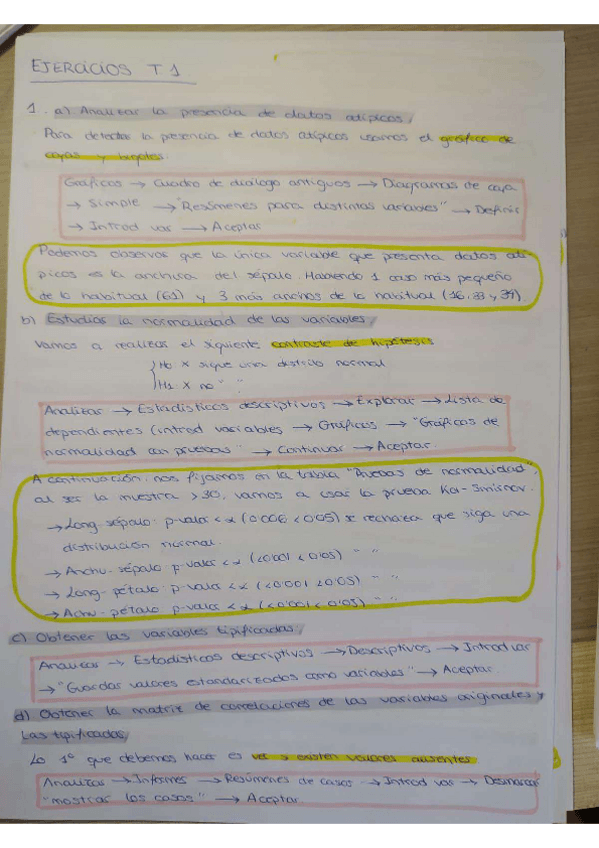 EJERCICIOS T1
1. a) Analizar la presencia de datos atípicos,
Para detectar la presencia de datos atípicos usamos el gráfico de
cajas y bigotes.
Gráficos → Cuadro de diálogo antiguos → Diagramas de caja
→ Simple → "Resúmenes para distintas variables" → Definir
→ Introd var → Aceptar
Podemos observar que la única variable que presenta datos atí-
picos es la anchura del sépalo. Habiendo 1 caso más pequeño
de lo habitual (61) y 3 más anchos de lo habitual (16, 33 y 34).
b) Estudios la normalidad de las variables,
Vamos a realizar el siguiente contraste de hipótesis
H0 X sigue una distrib normal
H1 X no " "
Analizar → Estadísticos descriptivos → Explorar → Lista de
dependientes (introd variables → Gráficos → "Gráficos de
normalidad con pruebas" → Continuar → Aceptar.
A continuación, nos fijamos en la tabla "Pruebas de normalidad,
al ser la muestra >30, vamos a usar la prueba Kol-Smirnov.
→ Long. sépalo: p-valor < α (0'006 < 0'05) se rechaza que siga una
distribución normal.
→ Anchu. sépalo p-valor < α (<0'001 < 0'05) " "
→ Long-pétalo: p-valor < α (<0'001 < 0'05) " "
→ Achu-pétalo p-valor < α (<0'001 < 0'05) " "
c) Obtener las variables tipificadas,
Analizar → Estadísticos descriptivos → Descriptivos → Introd var
→ "Guardar valores estandarizados como variables" → Aceptar.
d) Obtener la matriz de correlaciones de las variables originales y
las tipificadas,
Lo 1º que debemos hacer es ver si existen valores ausentes
Analizar → Informes → Resúmenes de casos → Introd var → Desmarcar
"mostrar los casos" → Aceptar